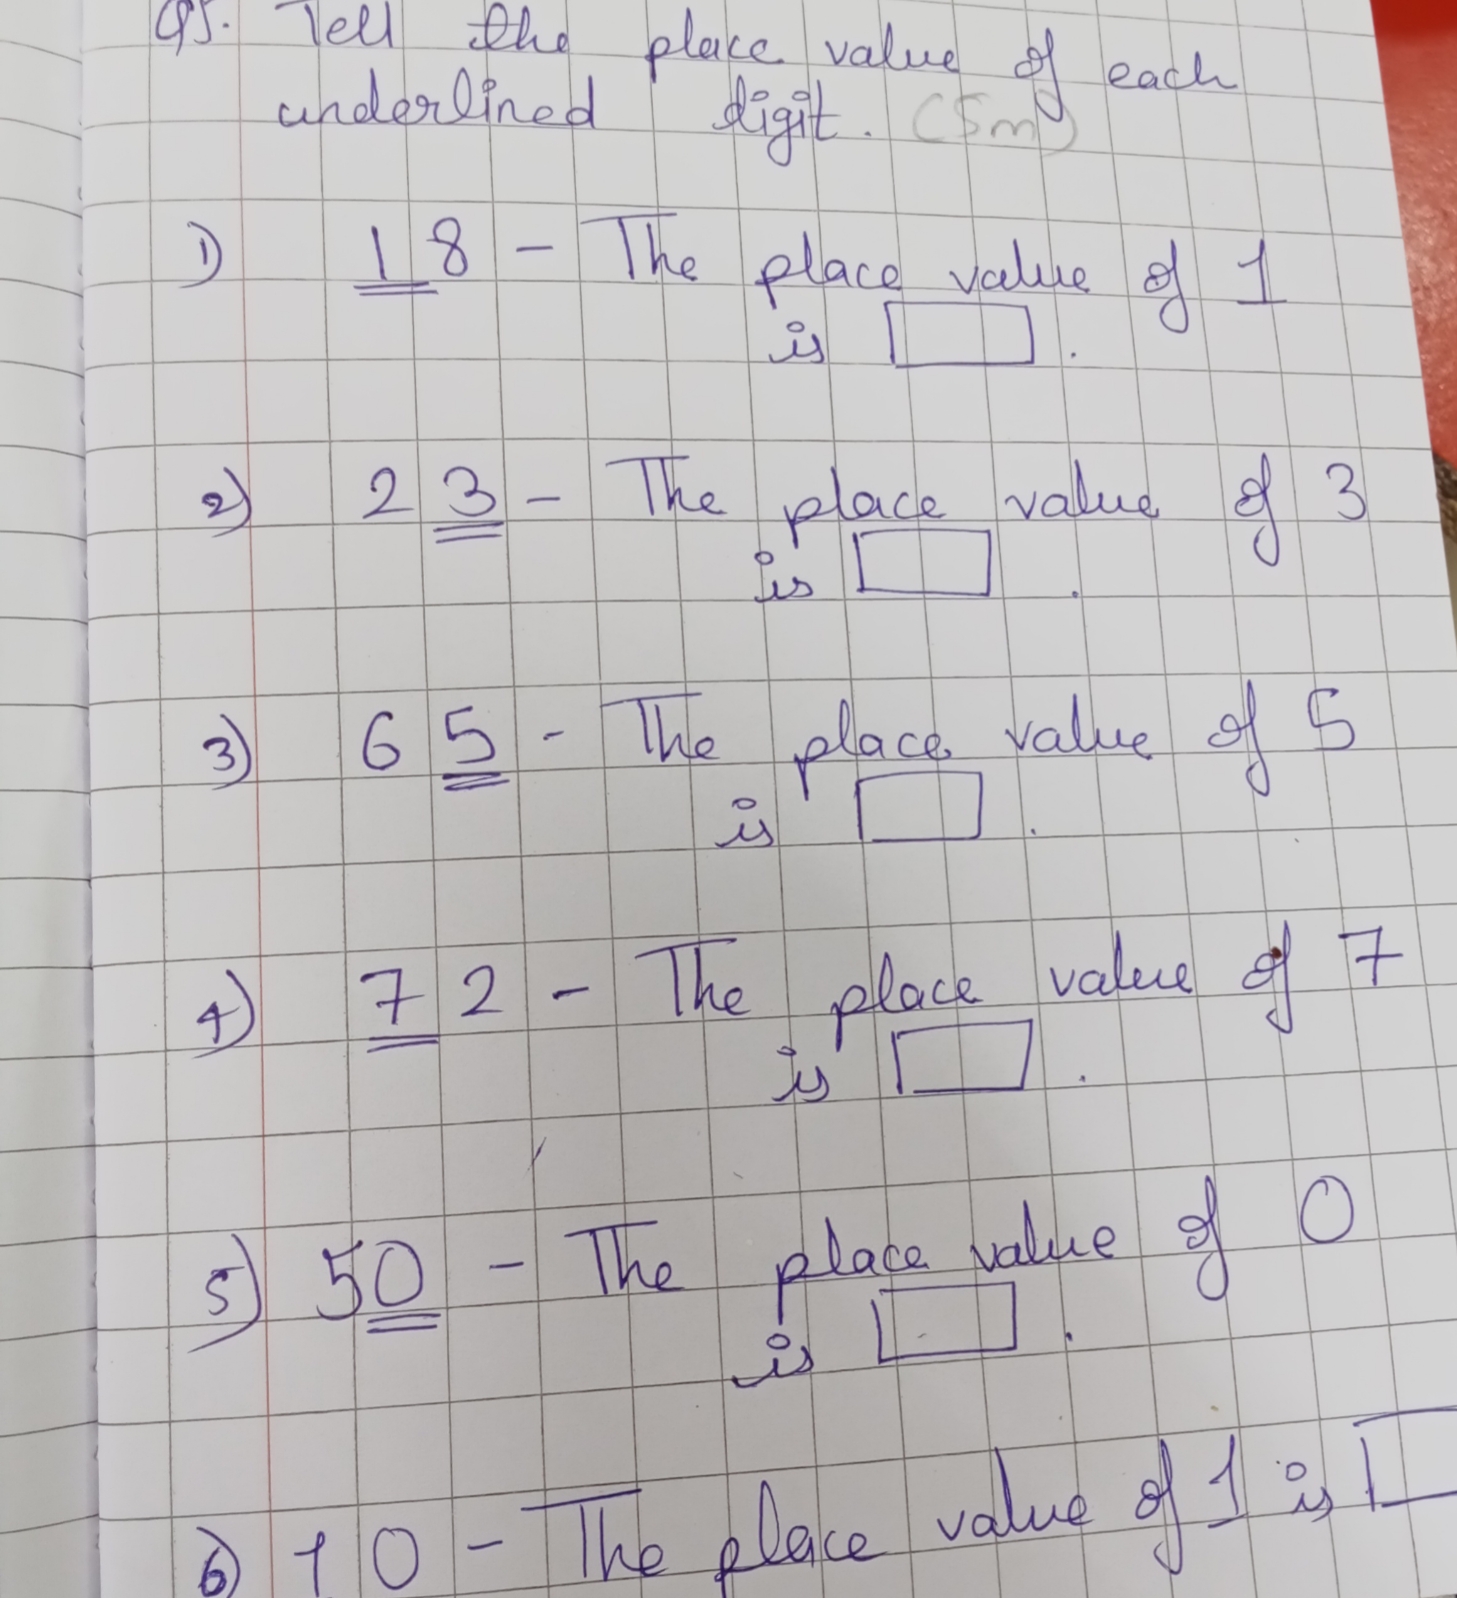 Q5. Tell the place value of each
underlined digit. (5m)
1) 18 - The place value of 1
is .
2) 23 - The place value of 3
is .
3) 65 - The place value of 5
is .
4) 72 - The place value of 7
is .
5) 50 - The place value of 0
is .
6) 10 - The place value of 1 is